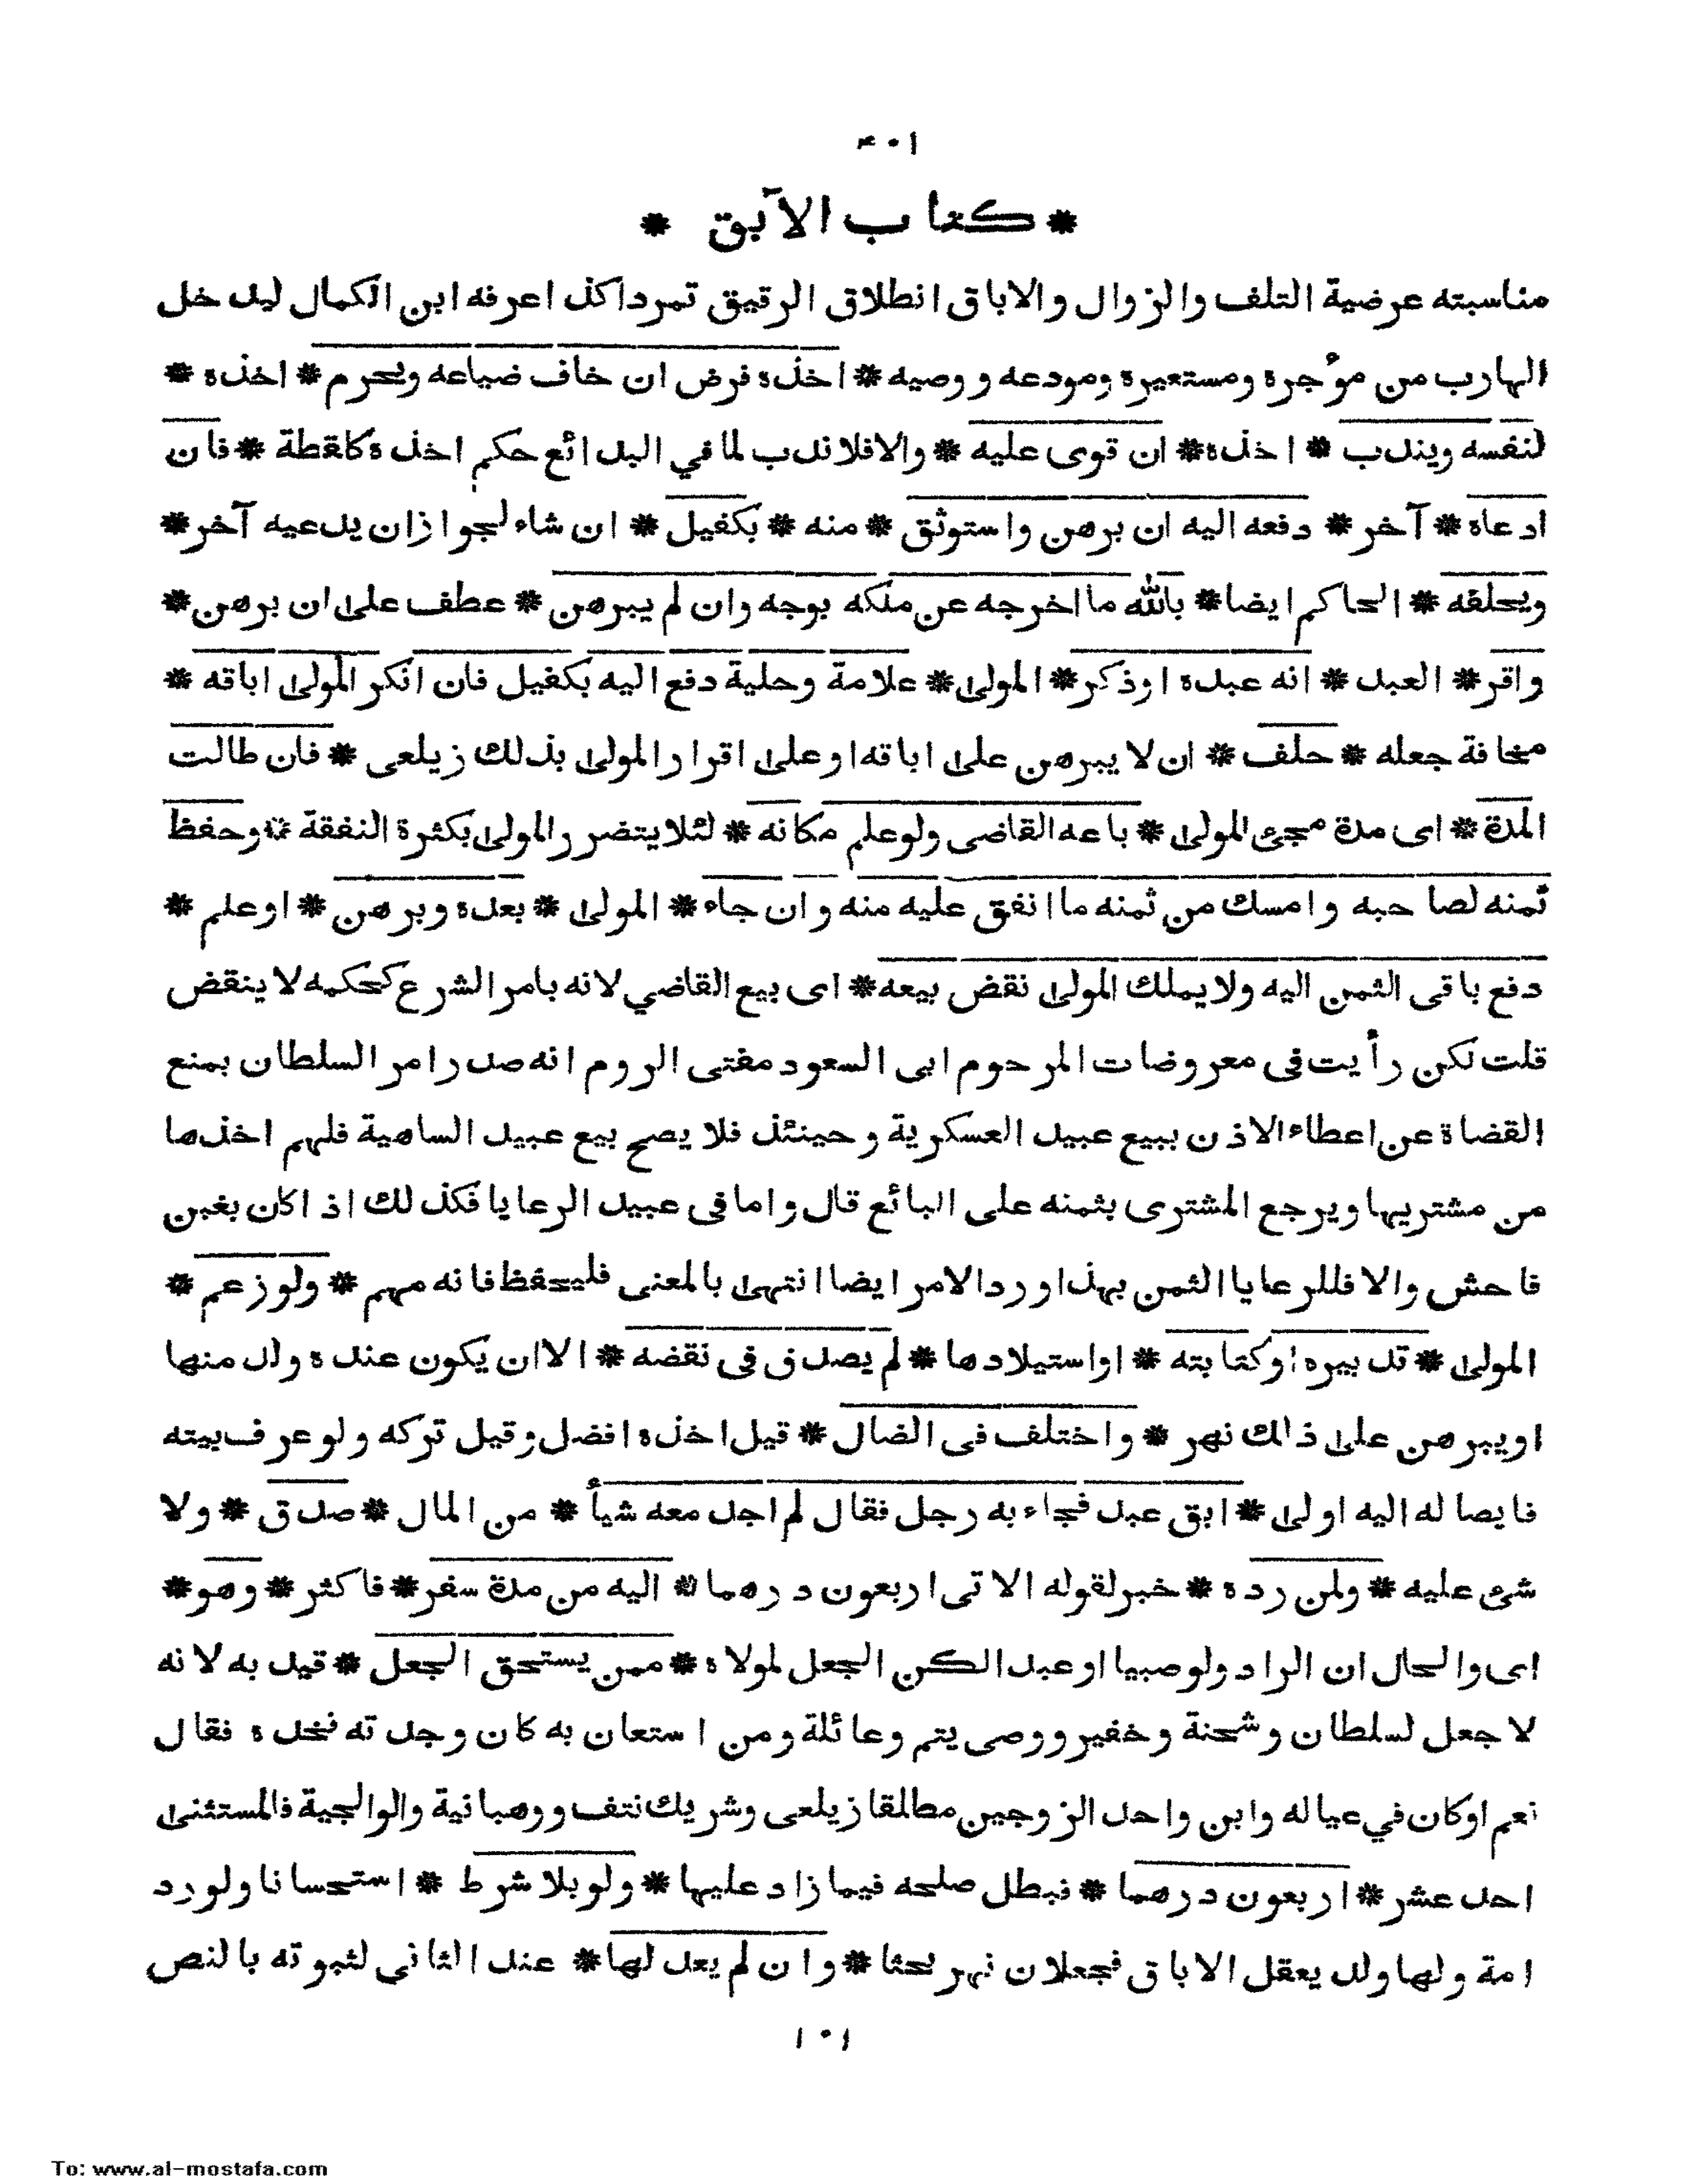 ۴۰۱
* كتاب الآبق *
مناسبته عرضية التلف والزوال والاباق انطلاق الرقيق تمردا كذا عرفه ابن الكمال ليدخل
الهارب من مؤجره ومستعيره ومودعه ووصيه * اخذه فرض ان خاف ضياعه ويحرم * اخذه *
لنفسه ويندب * اخذه * ان قوى عليه * والافلا ندب لما في البدائع حكم اخذه كلقطة * فان
ادعاه * آخر * دفعه اليه ان برهن واستوثق * منه * بكفيل * ان شاء لجوازان يدعيه آخر *
ويحلفه * الحاكم ايضا * بالله ما اخرجه عن ملكه بوجه وان لم يبرهن * عطف على ان برهن *
واقر * العبد * انه عبده اوذكر * المولى * علامة وحلية دفع اليه بكفيل فان انكر المولى اباقه *
مخافة جعله * حلف * ان لا يبرهن على اباقه اوعلى اقرار المولى بذلك زيلعى * فان طالت
المدة * اى مدة مجئ المولى * باعه القاضى ولوعلم مكانه * لئلا يتضرر المولى بكثرة النفقة * وحفظ
ثمنه لصاحبه وامسك من ثمنه ما انفق عليه منه وان جاء * المولى * بعده وبرهن * اوعلم *
دفع باقى الثمن اليه ولايملك المولى نقض بيعه * اى بيع القاضي لانه بامر الشرع كحكمه لا ينقض
قلت لكن رأيت فى معروضات المرحوم ابى السعود مفتى الروم انه صدر امر السلطان بمنع
القضاة عن اعطاء الاذن ببيع عبيد العسكرية وحينئذ فلا يصح بيع عبيد الساهية فلهم اخذها
من مشتريها ويرجع المشترى بثمنه على البائع قال واما فى عبيد الرعايا فكذلك اذا كان بغبن
فاحش والا فللرعايا الثمن بهذا ورد الامر ايضا انتهى بالمعنى فليحفظ فانه مهم * ولوزعم *
المولى * تدبيره اوكتابته * اواستيلادها * لم يصدق فى نقضه * الا ان يكون عنده ولد منها
اويبرهن على ذلك نهر * واختلف فى الضال * قيل اخذه افضل وقيل تركه ولو عرف بيته
فايصاله اليه اولى * ابق عبد فجاء به رجل فقال لم اجد معه شيأ * من المال * صدق * ولا
شئ عليه * ولمن رده * خبر لقوله الاتى اربعون درهما * اليه من مدة سفر * فاكثر * وهو *
اى والحال ان الراد ولوصبيا اوعبد الكن الجعل لمولاه * ممن يستحق الجعل * قيد به لانه
لا جعل لسلطان وشحنة وخفير ووصى يتم وعائلة ومن استعان به كان وجدته فخده فقال
نعم اوكان في عياله وابن واحد الزوجين مطالقا زيلعى وشريك نتف ووهبانية والوالجية فالمستثنى
احد عشر * اربعون درهما * فبطل صلحه فيما زاد عليها * ولو بلا شرط * استحسانا ولورد
امة ولها ولد يعقل الاباق فجعلان نهر بحثا * وان لم يعدلها * عند الثانى لثبوته بالنص
۱۰۱
To: www.al-mostafa.com